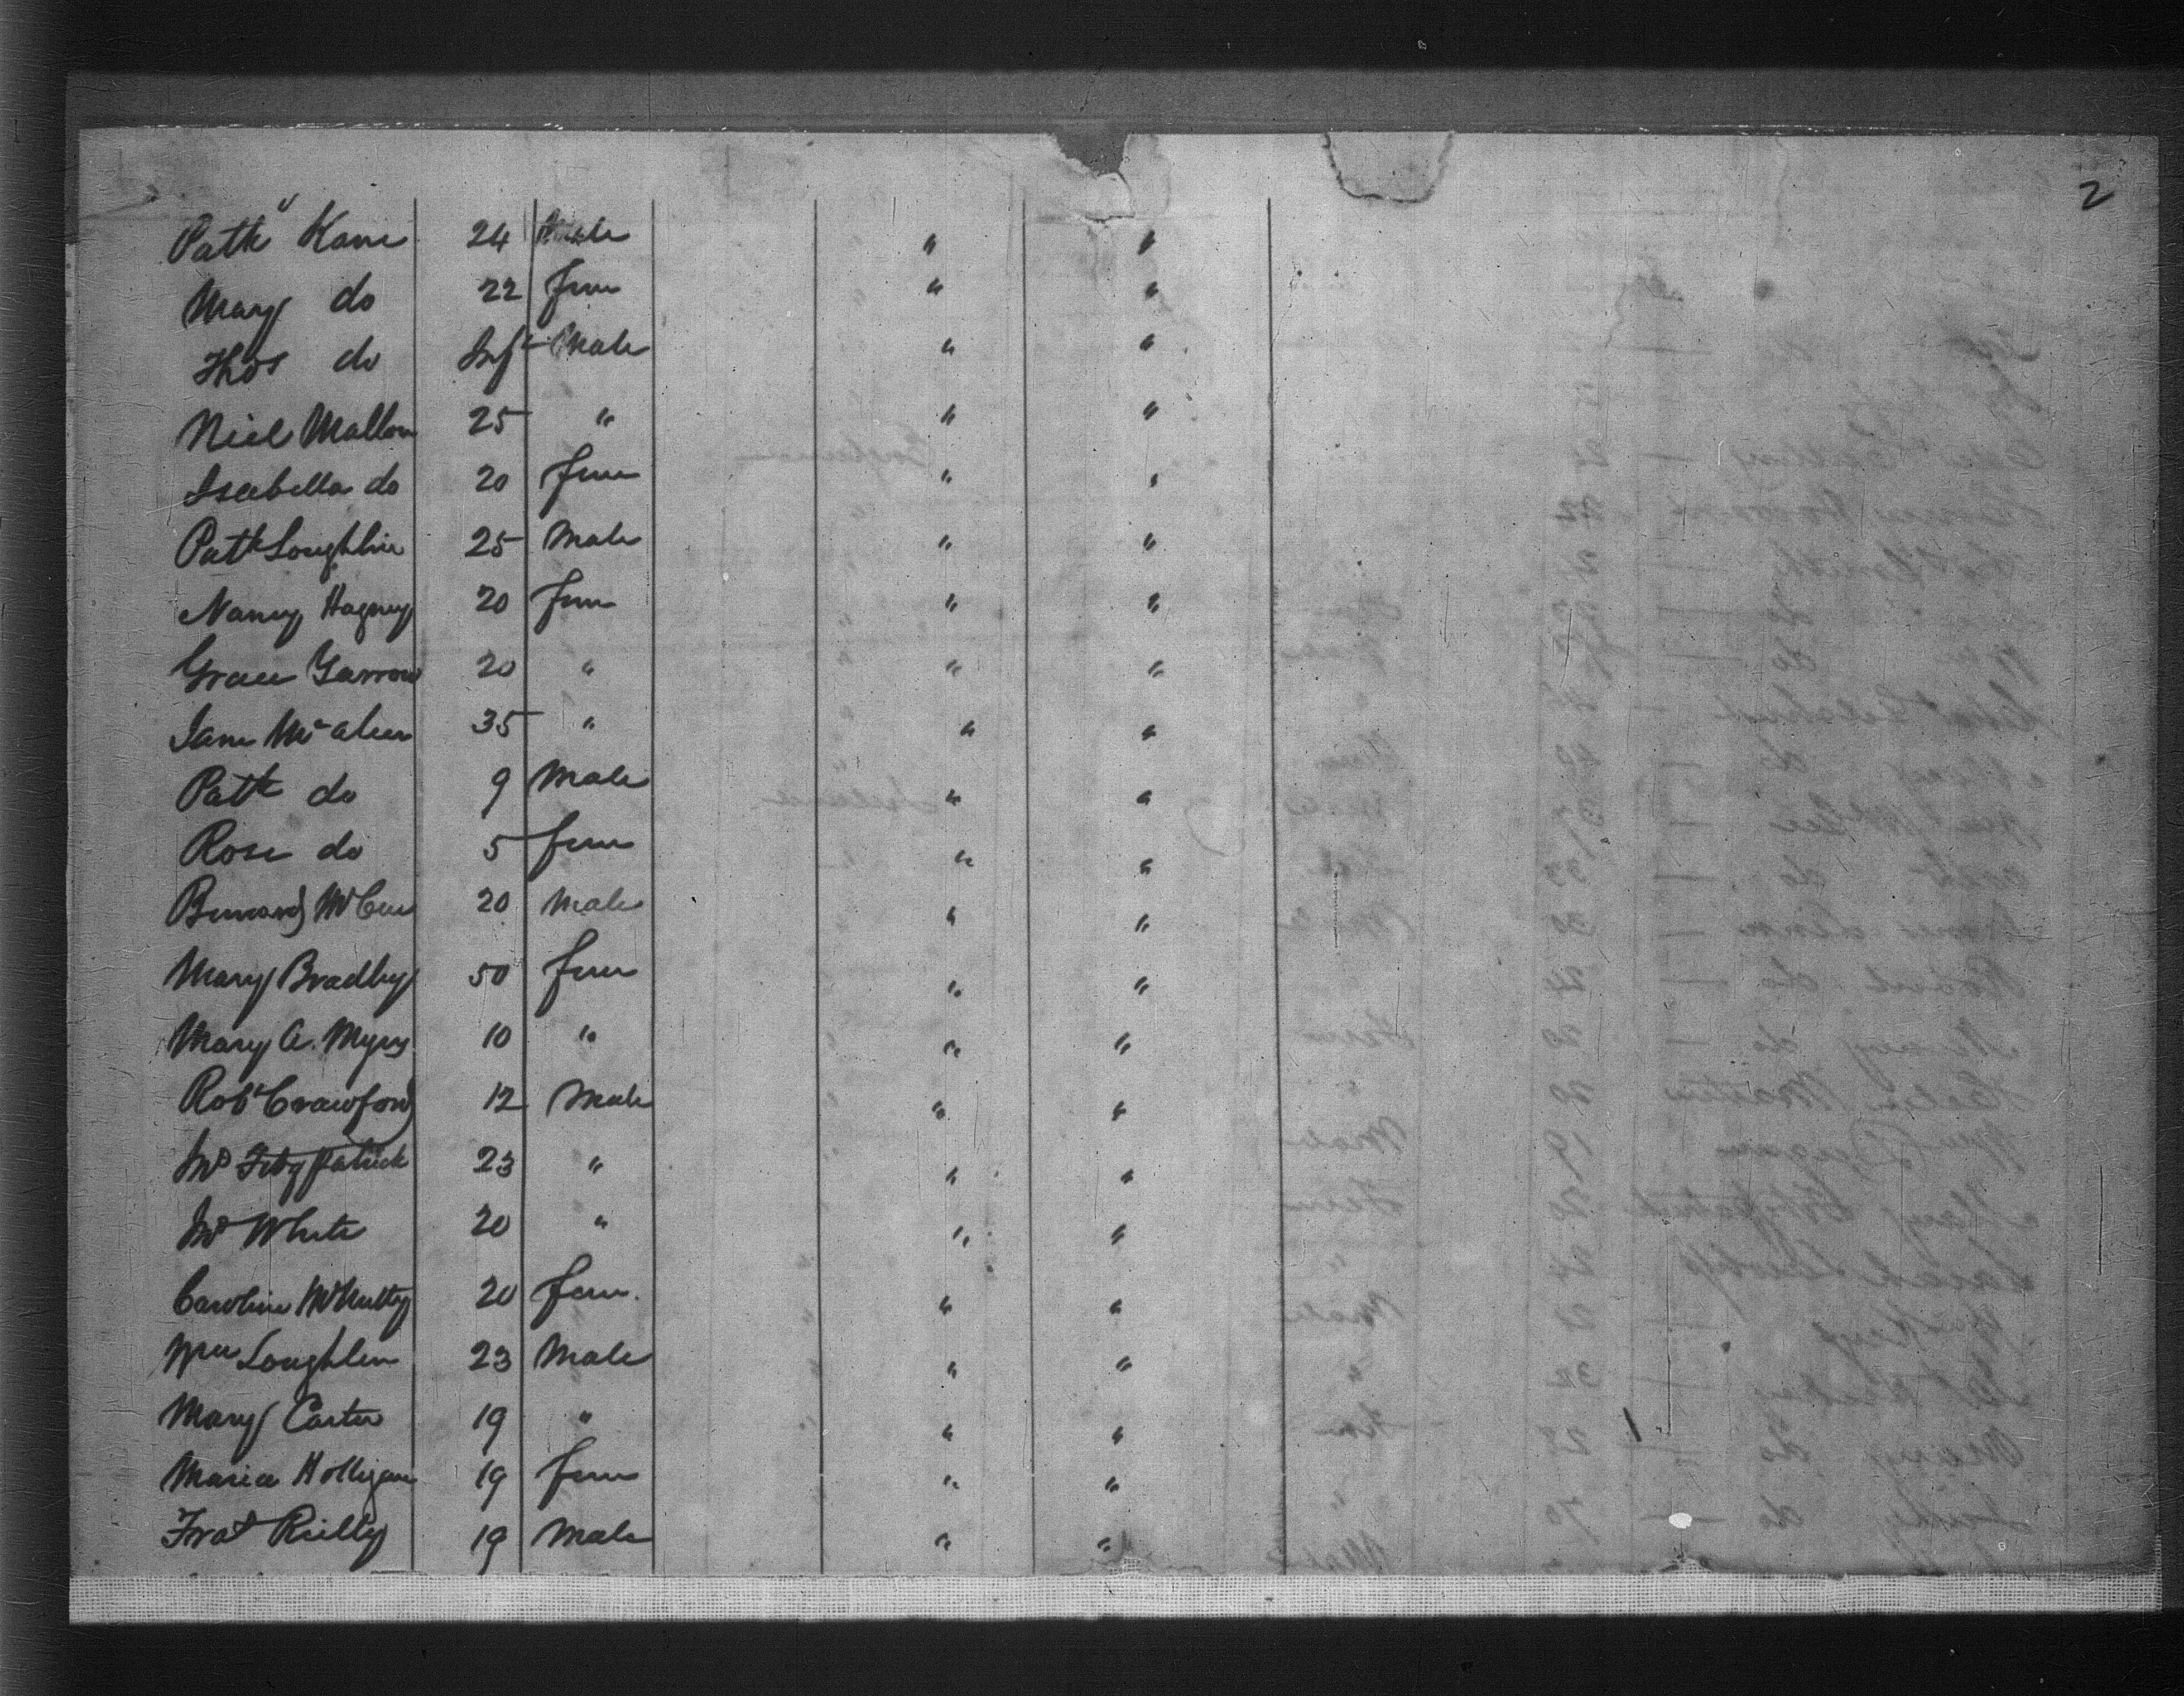 2
Patk Kane 24 Male " "
Mary do 22 fem " "
Thos do Inft Male " "
Niel Mallon 25 " " "
Isabella do 20 fem " "
Patk Loughlin 25 Male " "
Nancy Hagney 20 fem " "
Grace Garrow 20 " " "
Jane McAleer 35 " " "
Patk do 9 Male " "
Rose do 5 fem " "
Bernard McCue 20 Male " "
Mary Bradley 50 fem " "
Mary A. Myers 10 " " "
Robt Crawford 12 Male " "
Jno Fitzpatrick 23 " " "
Jno White 20 " " "
Caroline McNulty 20 fem. " "
Wm Loughlin 23 Male " "
Mary Carter 19 " " "
Maria Holligan 19 fem " "
Reilly 19 Male " "